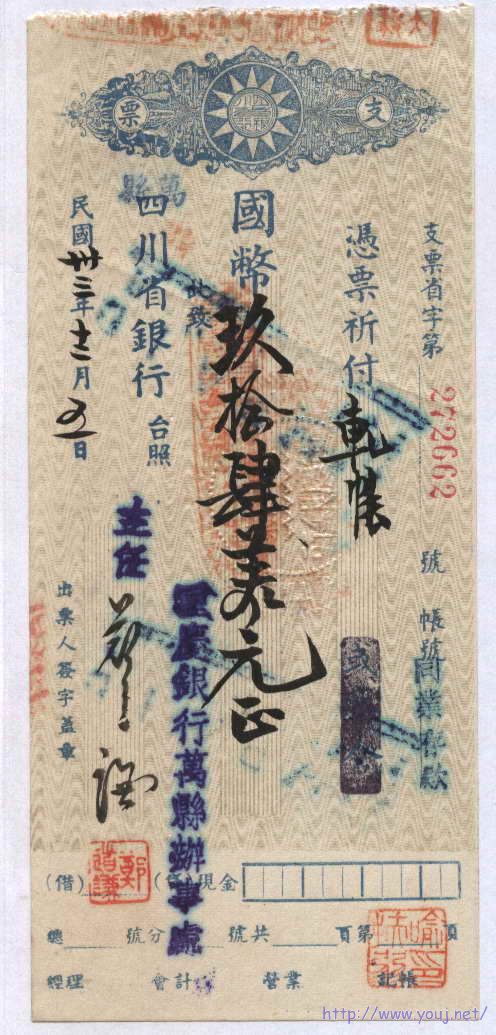 支票
支票省字第272662號
帳號同業存款
憑票祈付
國幣玖拾肆萬元正
此致
萬縣
四川省銀行 台照
民國卅三年十二月五日
重慶銀行萬縣辦事處
主任
出票人簽字蓋章
鄭道謙
(借) (貸)現金
總 號分 號共 頁第 頁
經理 會計 營業 記帳
http://www.youj.net/